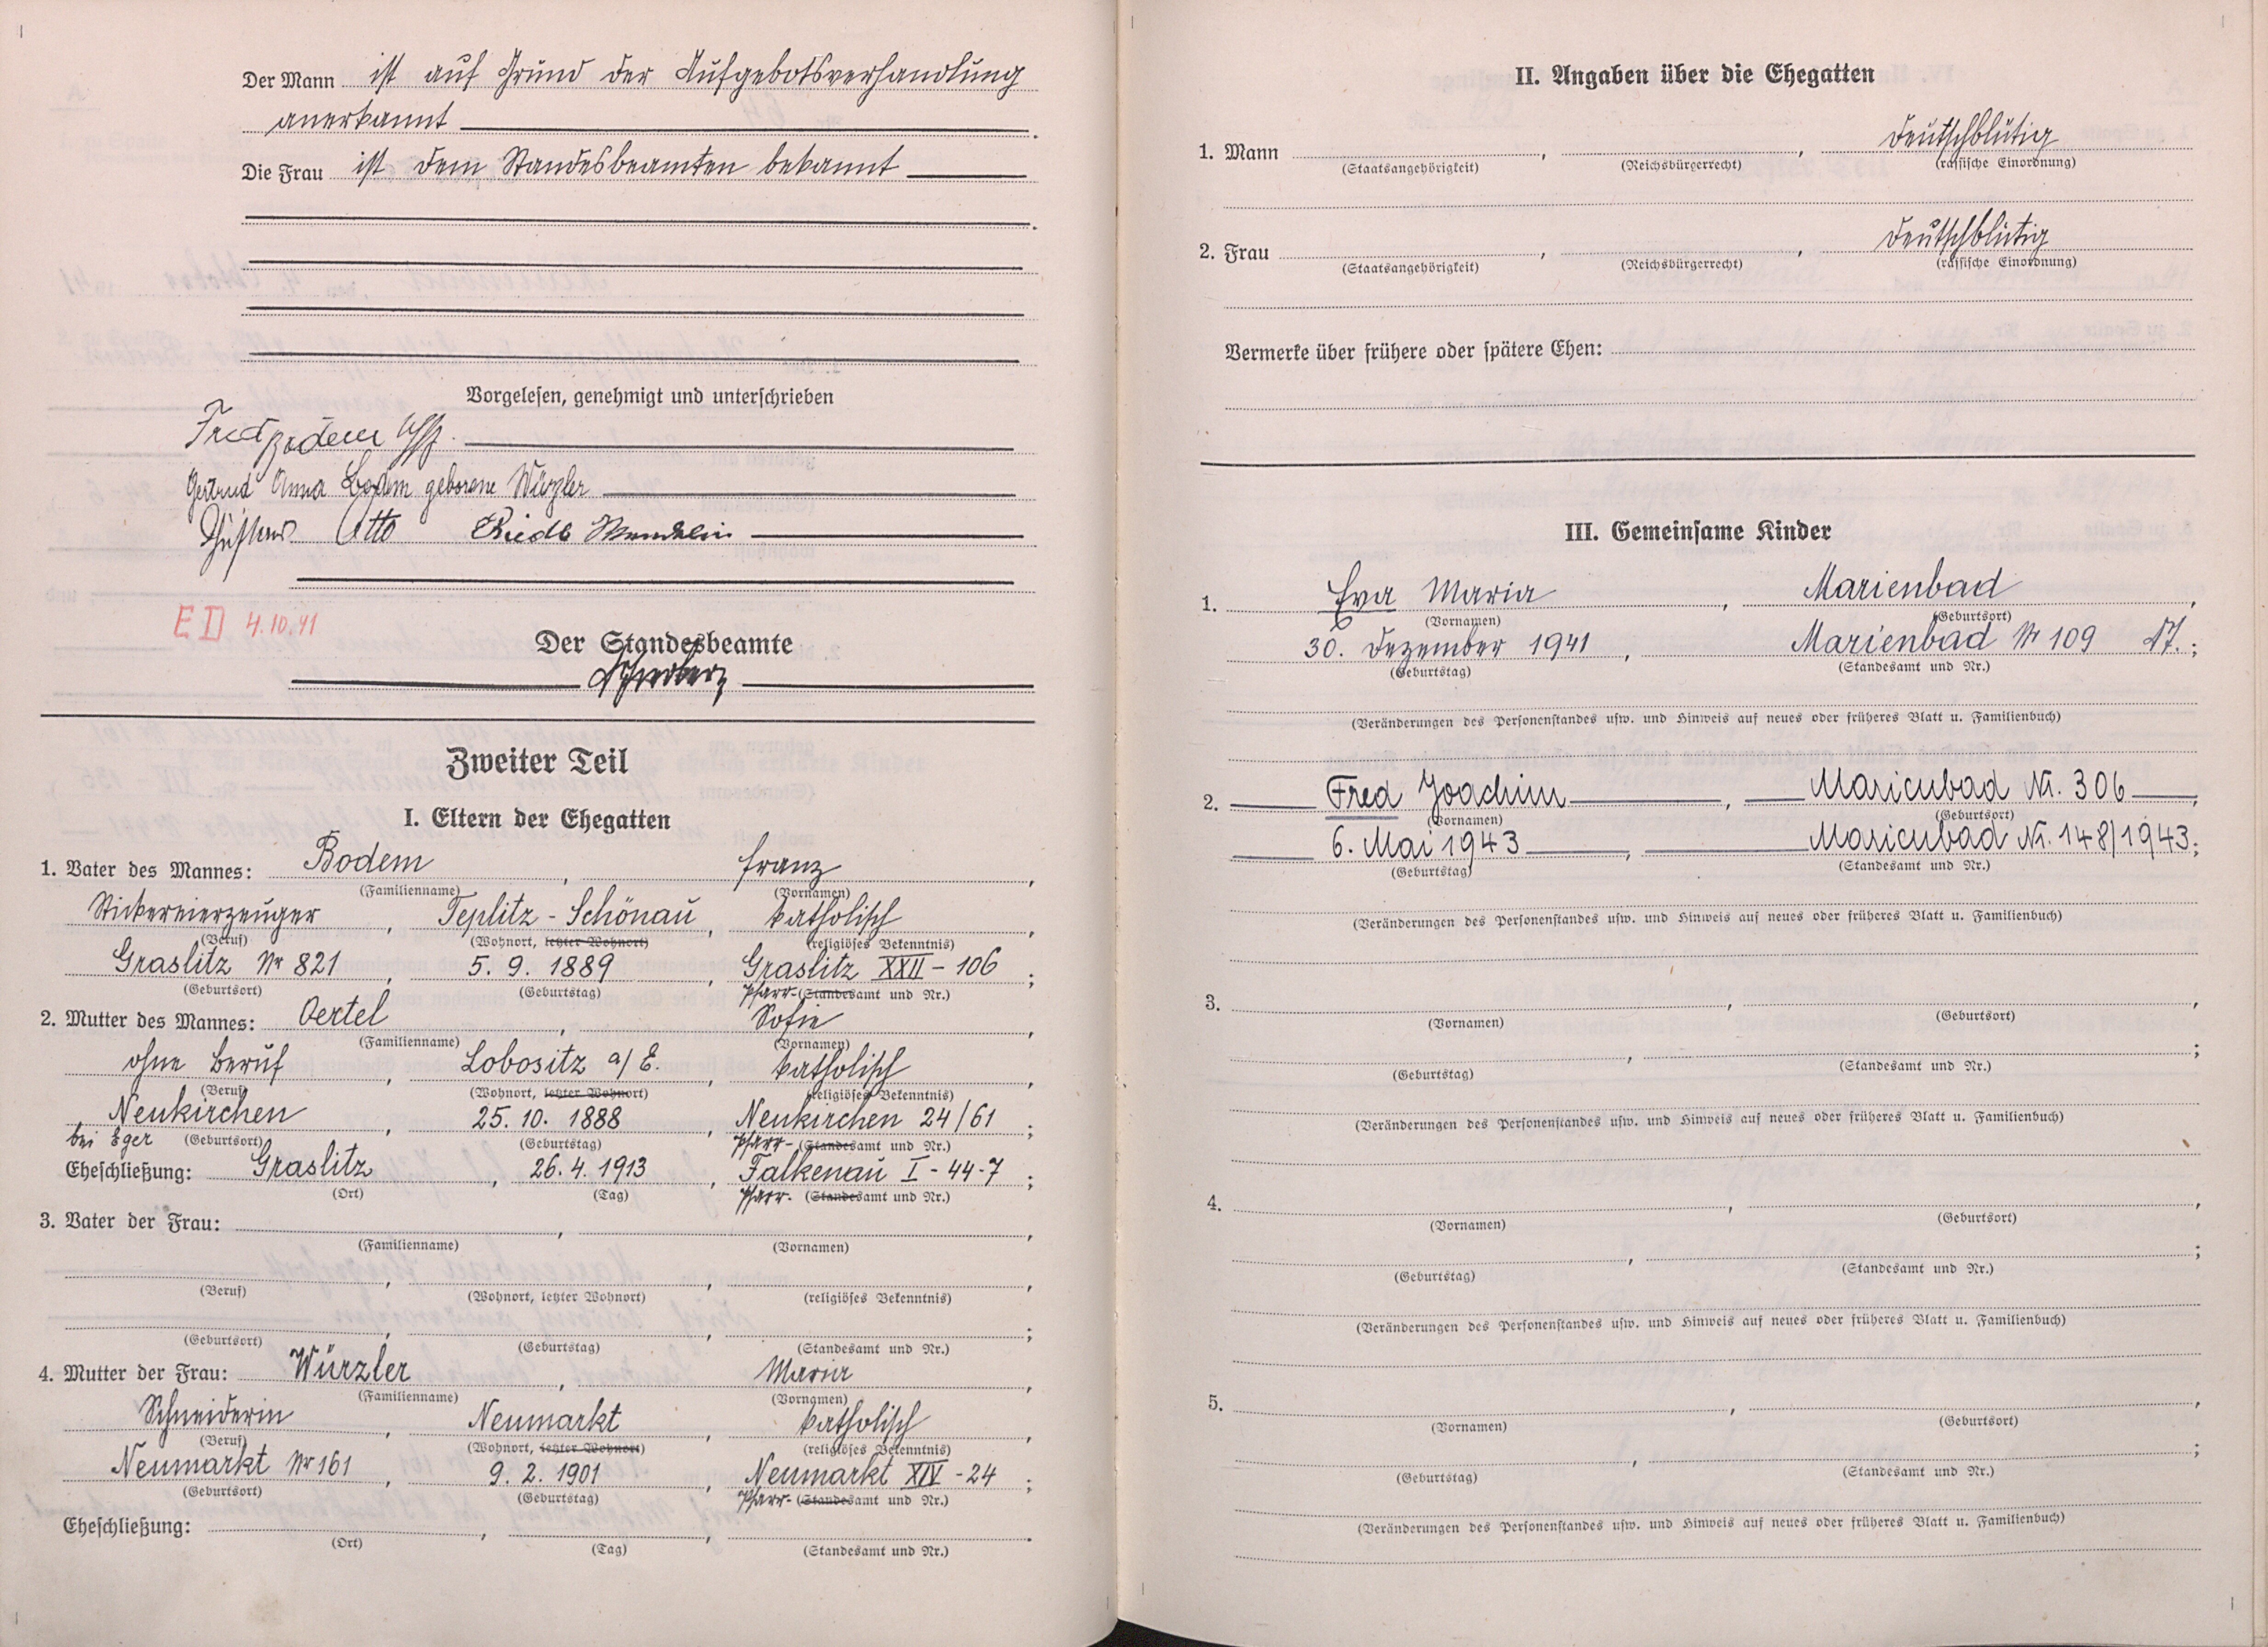 Der Mann ist auf Grund der Aufgebotsverhandlung
anerkannt
Die Frau ist dem Standesbeamten bekannt
Vorgelesen, genehmigt und unterschrieben
Fred Bodem
Gertrud Anna Bodem geborene Würzler
Otto Riedl
E D 4.10.41
Der Standesbeamte
Zweiter Teil
I. Eltern der Ehegatten
1. Vater des Mannes: Bodem, Franz,
(Familienname) (Vornamen)
Stickereierzeuger, Teplitz-Schönau, katholisch,
(Beruf) (Wohnort, letzter Wohnort) (religiöses Bekenntnis)
Graslitz Nr 821, 5. 9. 1889, Graslitz XXII - 106;
(Geburtsort) (Geburtstag) Pfarr- (Standesamt und Nr.)
2. Mutter des Mannes: Oertel, Sofie,
(Familienname) (Vornamen)
ohne Beruf, Lobositz a/E., katholisch,
(Beruf) (Wohnort, letzter Wohnort) (religiöses Bekenntnis)
Neukirchen, 25. 10. 1888, Neukirchen 24/61;
bei Eger (Geburtsort) (Geburtstag) Pfarr- (Standesamt und Nr.)
Eheschließung: Graslitz, 26. 4. 1913, Falkenau I - 44-7;
(Ort) (Tag) Pfarr- (Standesamt und Nr.)
3. Vater der Frau: , ,
(Familienname) (Vornamen)
(Beruf) (Wohnort, letzter Wohnort) (religiöses Bekenntnis)
(Geburtsort) (Geburtstag) (Standesamt und Nr.)
4. Mutter der Frau: Würzler, Maria,
(Familienname) (Vornamen)
Schneiderin, Neumarkt, katholisch,
(Beruf) (Wohnort, letzter Wohnort) (religiöses Bekenntnis)
Neumarkt Nr 161, 9. 2. 1901, Neumarkt XIV - 24;
(Geburtsort) (Geburtstag) Pfarr- (Standesamt und Nr.)
Eheschließung: , , .
(Ort) (Tag) (Standesamt und Nr.)
II. Angaben über die Ehegatten
1. Mann , , deutschblütig
(Staatsangehörigkeit) (Reichsbürgerrecht) (rassische Einordnung)
2. Frau , , deutschblütig
(Staatsangehörigkeit) (Reichsbürgerrecht) (rassische Einordnung)
Vermerke über frühere oder spätere Ehen:
III. Gemeinsame Kinder
1. Eva Maria, Marienbad,
(Vornamen) (Geburtsort)
30. Dezember 1941, Marienbad Nr 109;
(Geburtstag) (Standesamt und Nr.)
(Veränderungen des Personenstandes usw. und Hinweis auf neues oder früheres Blatt u. Familienbuch)
2. Fred Joachim, Marienbad Nr. 306,
(Vornamen) (Geburtsort)
6. Mai 1943, Marienbad Nr. 148/1943;
(Geburtstag) (Standesamt und Nr.)
(Veränderungen des Personenstandes usw. und Hinweis auf neues oder früheres Blatt u. Familienbuch)
3. , ,
(Vornamen) (Geburtsort)
(Geburtstag) (Standesamt und Nr.)
(Veränderungen des Personenstandes usw. und Hinweis auf neues oder früheres Blatt u. Familienbuch)
4. , ,
(Vornamen) (Geburtsort)
(Geburtstag) (Standesamt und Nr.)
(Veränderungen des Personenstandes usw. und Hinweis auf neues oder früheres Blatt u. Familienbuch)
5. , ,
(Vornamen) (Geburtsort)
(Geburtstag) (Standesamt und Nr.)
(Veränderungen des Personenstandes usw. und Hinweis auf neues oder früheres Blatt u. Familienbuch)